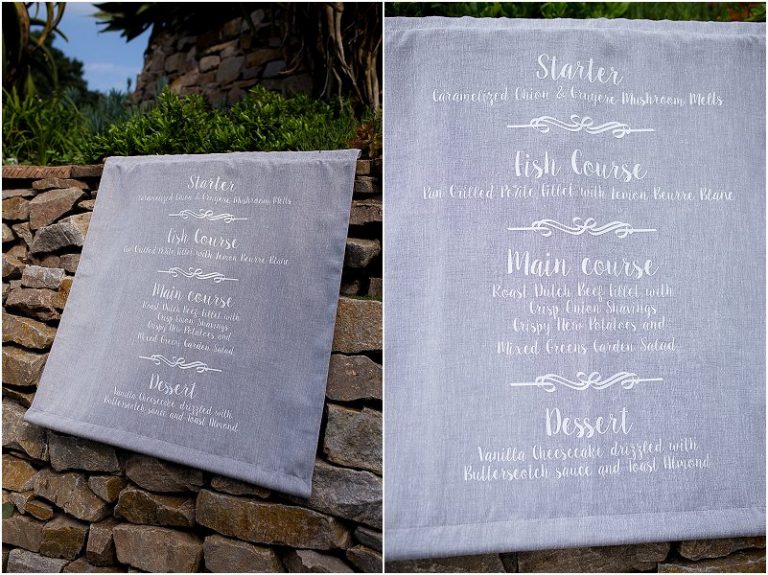 Starter
Caramelized Onion & Gruyere Mushroom Melts
Fish Course
Pan Grilled Petite Fillet with Lemon Beurre Blanc
Main course
Roast Dutch Beef Fillet with
Crisp Onion Shavings
Crispy New Potatoes and
Mixed Greens Garden Salad
Dessert
Vanilla Cheesecake drizzled with
Butterscotch sauce and Toast Almond
Starter
Caramelized Onion & Gruyere Mushroom Melts
Fish Course
Pan Grilled Petite Fillet with Lemon Beurre Blanc
Main course
Roast Dutch Beef Fillet with
Crisp Onion Shavings
Crispy New Potatoes and
Mixed Greens Garden Salad
Dessert
Vanilla Cheesecake drizzled with
Butterscotch sauce and Toast Almond